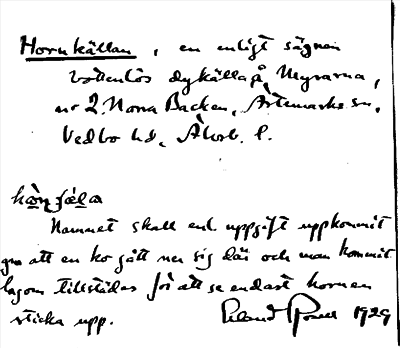 Hornkällan, en enligt sägnen
bottenlös dykälla på Myrarna,
nr 2. Norra Backen, Ärtemarks sn,
Vedbo hd, Älvsb. l.
Namnet skall enl. uppgift uppkommit
gm att en ko gått ner sig där och man kommit
lagom tillstädes för att se endast hornen
sticka upp. 1929